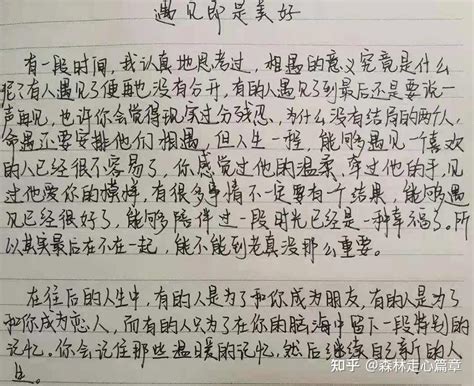 遇见即是美好
有一段时间，我认真地思考过，相遇的意义究竟是什么
呢？有人遇见了便再也没有分开，有的人遇见了到最后还是要说一
声再见，也许你会觉得现实过分残忍，为什么没有结局的两个人，
命运还要安排他们相遇，但人生一程，能够遇见一个喜欢
的人已经很不容易了，你感觉过他的温柔、牵过他的手，见
过他爱你的模样，有很多事情不一定要有个结果，能够遇
见已经很好了，能够陪伴过一段时光已经是一种幸福了。所
以其实最后在不在一起，能不能到老真没那么重要。
在往后的人生中，有的人是为了和你成为朋友，有的人是为了
和你成为恋人，而有的人只为了在你的脑海中留下一段特别的
记忆。你会记住那些温暖的记忆，然后继续自己新的人
生。
知乎 @森林走心篇章